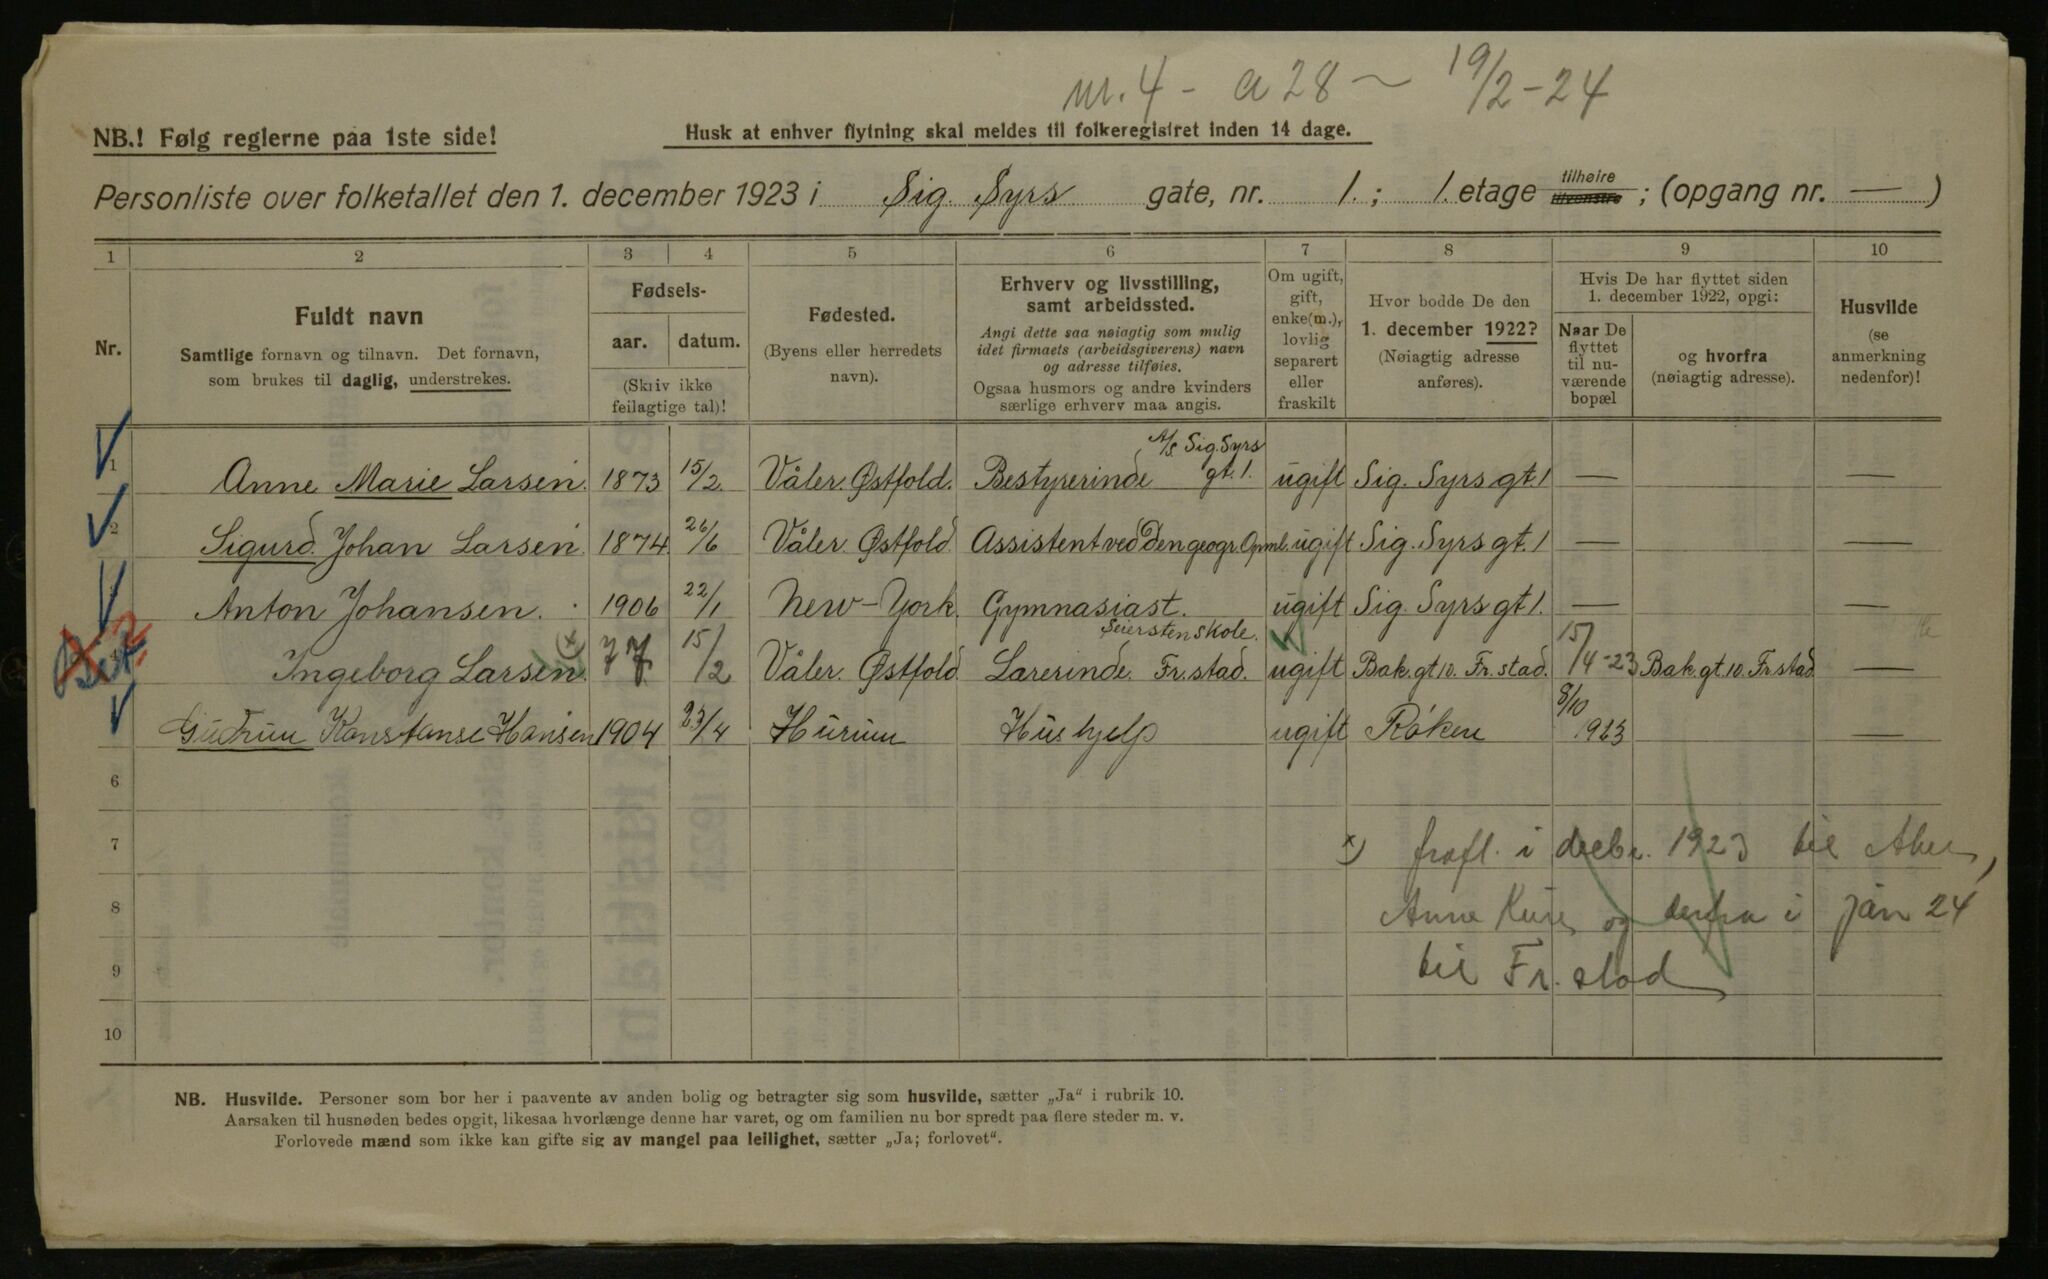 m. 4 - a 28 ~ 19/2-24
NB.! Følg reglerne paa 1ste side!
Husk at enhver flytning skal meldes til folkeregistret inden 14 dage.
Personliste over folketallet den 1. december 1923 i Sig. Syrs gate, nr. 1. ; 1. etage tilhøire tilvenstre ; (opgang nr. — )
1 2 3 4 5 6 7 8 9 10
Nr.
Fuldt navn
Samtlige fornavn og tilnavn. Det fornavn,
som brukes til daglig, understrekes.
Fødsels-
aar. datum.
(Skriv ikke
feilagtige tal)!
Fødested.
(Byens eller herredets
navn).
Erhverv og livsstilling,
samt arbeidssted.
Angi dette saa nøiagtig som mulig
idet firmaets (arbeidsgiverens) navn
og adresse tilføies.
Ogsaa husmors og andre kvinders
særlige erhverv maa angis.
Om ugift,
gift,
enke(m.),
lovlig
separert
eller
fraskilt
Hvor bodde De den
1. december 1922?
(Nøiagtig adresse
anføres).
Hvis De har flyttet siden
1. december 1922, opgi:
Naar De
flyttet
til nu-
værende
bopæl
og hvorfra
(nøiagtig adresse).
Husvilde
(se
anmerkning
nedenfor)!
1 Anne Marie Larsen. 1873 15/2. Våler. Østfold. Bestyrerinde A/S. Sig. Syrs gt. 1. ugift Sig. Syrs gt. 1 — —
2 Sigurd Johan Larsen. 1874 26/6 Våler. Østfold Assistent ved Den geogr. Opml. ugift Sig. Syrs gt. 1 — —
Anton Johansen. 1906 22/1 New-York. Gymnasiast. ugift Sig. Syrs gt 1. — —
4 Ingeborg Larsen (x 77 15/2 Våler. Østfold Lærerinde. Seiersten skole. Fr.stad. ugift Bak. gt 10. Fr. stad. 15/4-23 Bak. gt. 10. Fr.stad —
Gudrun Konstanse Hansen 1904 23/4 Hurum Hushjelp ugift Røken 8/10 1923
6
7 x) frafl. i decbr. 1923 til Aker,
8 Anne Kures og derfra i jan 24
9 til Fr. stad
10
NB. Husvilde. Personer som bor her i paavente av anden bolig og betragter sig som husvilde, sætter „Ja“ i rubrik 10.
Aarsaken til husnøden bedes opgit, likesaa hvorlænge denne har varet, og om familien nu bor spredt paa flere steder m. v.
Forlovede mænd som ikke kan gifte sig av mangel paa leilighet, sætter „Ja; forlovet“.